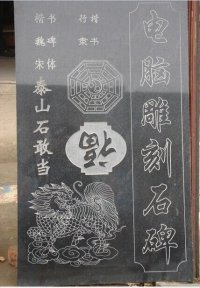 电脑雕刻石碑
行楷
隶书
福
楷书
魏碑
宋体
泰山石敢当